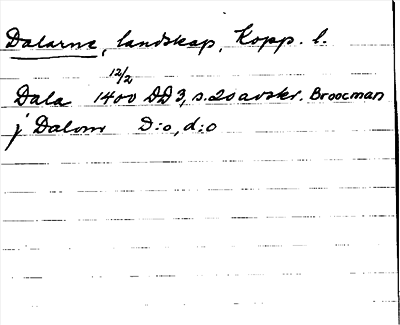 Dalarne, landskap, Kopp. l.
12/2
Dala 1400 DD 3, s. 20 avskr. Broocman
j Dalom D:o, d:o